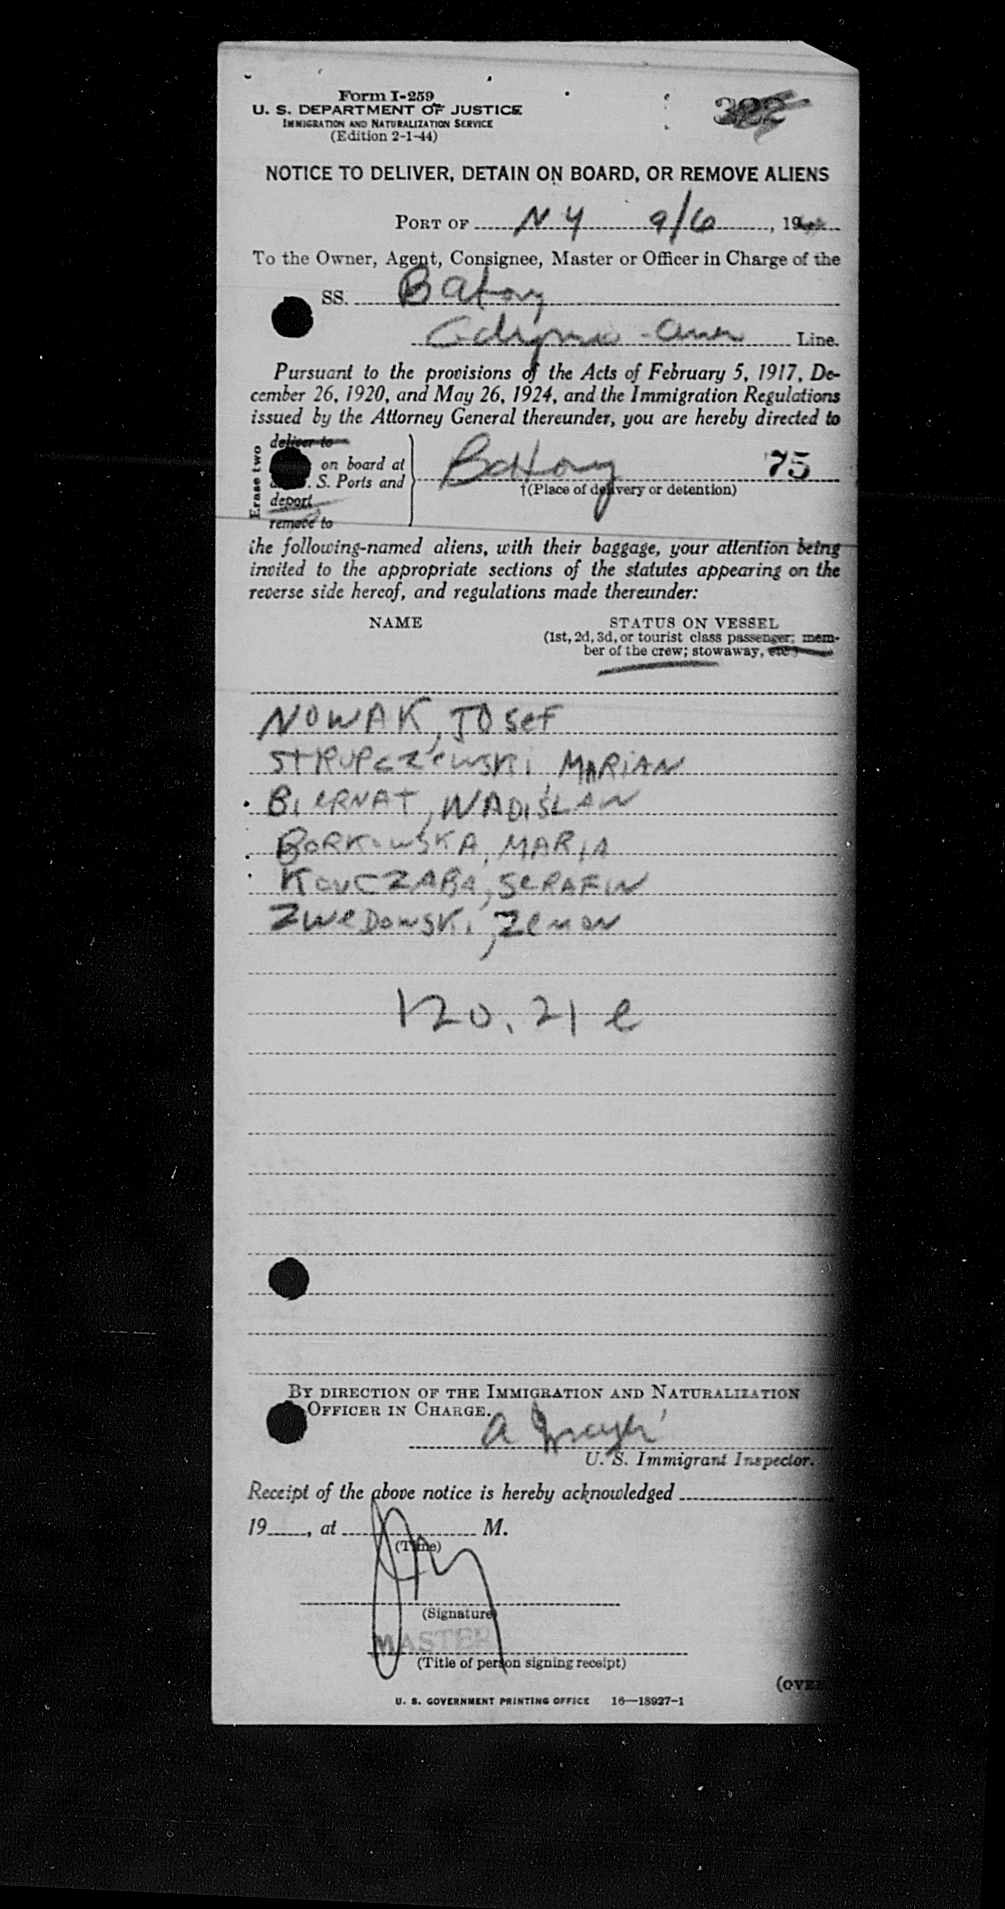 Form I-259
U. S. DEPARTMENT OF JUSTICE
IMMIGRATION AND NATURALIZATION SERVICE
(Edition 2-1-44)
322
NOTICE TO DELIVER, DETAIN ON BOARD, OR REMOVE ALIENS
PORT OF NY 9/6, 19
To the Owner, Agent, Consignee, Master or Officer in Charge of the
SS. Batory
Gdynia - Amer Line.
Pursuant to the provisions of the Acts of February 5, 1917, De-
cember 26, 1920, and May 26, 1924, and the Immigration Regulations
issued by the Attorney General thereunder, you are hereby directed to
Erase two
deliver to
on board at
S. Ports and
deport
remove to
Batory 75
†(Place of delivery or detention)
the following-named aliens, with their baggage, your attention being
invited to the appropriate sections of the statutes appearing on the
reverse side hereof, and regulations made thereunder:
NAME STATUS ON VESSEL
(1st, 2d, 3d, or tourist class passenger; mem-
ber of the crew; stowaway, etc.)
NOWAK, JOSeF
STRUPCZeWSKi, MARiAN
BieRNAT, WADiSLAW
BORKOWSKA, MARiA
KOUCZABA, SeRAFiN
ZWeDOWSKi, ZeNON
120.21 e
BY DIRECTION OF THE IMMIGRATION AND NATURALIZATION
OFFICER IN CHARGE.
A
U. S. Immigrant Inspector.
Receipt of the above notice is hereby acknowledged
19 , at M.
(Time)
(Signature)
MASTER
(Title of person signing receipt)
(OVE
U. S. GOVERNMENT PRINTING OFFICE 16—18927-1